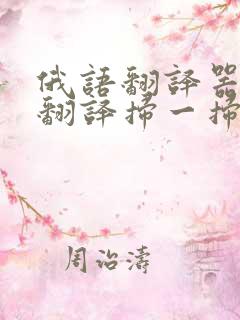 俄語翻譯器
翻譯掃一掃
周治濤